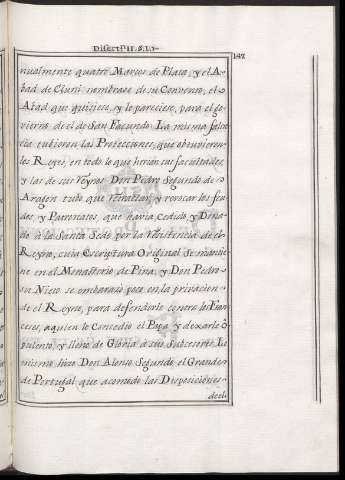 Disert.ⁿ II. §. L.
142
nualmente quatro Marcos de Plata, y el A-
bad de Cluni nombrase de su Convento, el
Abad que quisiese, y le pareciese, para el go-
vierno de el de San Facundo. La misma
cia tubieron las Protecciones, que obtuvieron
los Reyes, en todo lo que heria sus facultades,
y las de sus Reynos. Don Pedro Segundo de
Aragon tubo que retractar, y revocar los feu-
dos, y Patronatos, que havia cedido, y Dona-
do à la Santa Sede por la resistencia de el
Reyno, cuia Escriptura Original se mantie-
ne en el Monasterio de Pina, y Don Pedro
su Nieto se embarazó poco en la privacion
de el Reyno, para defenderle contra los Fran-
ceses, aquien lo Concedio el Papa, y dexarle o-
pulento, y lleno de Gloria à sus Subcesores. Lo
mismo hizo Don Alonso Segundo el Grande
de Portugal que acomodó las Disposiciones
de el